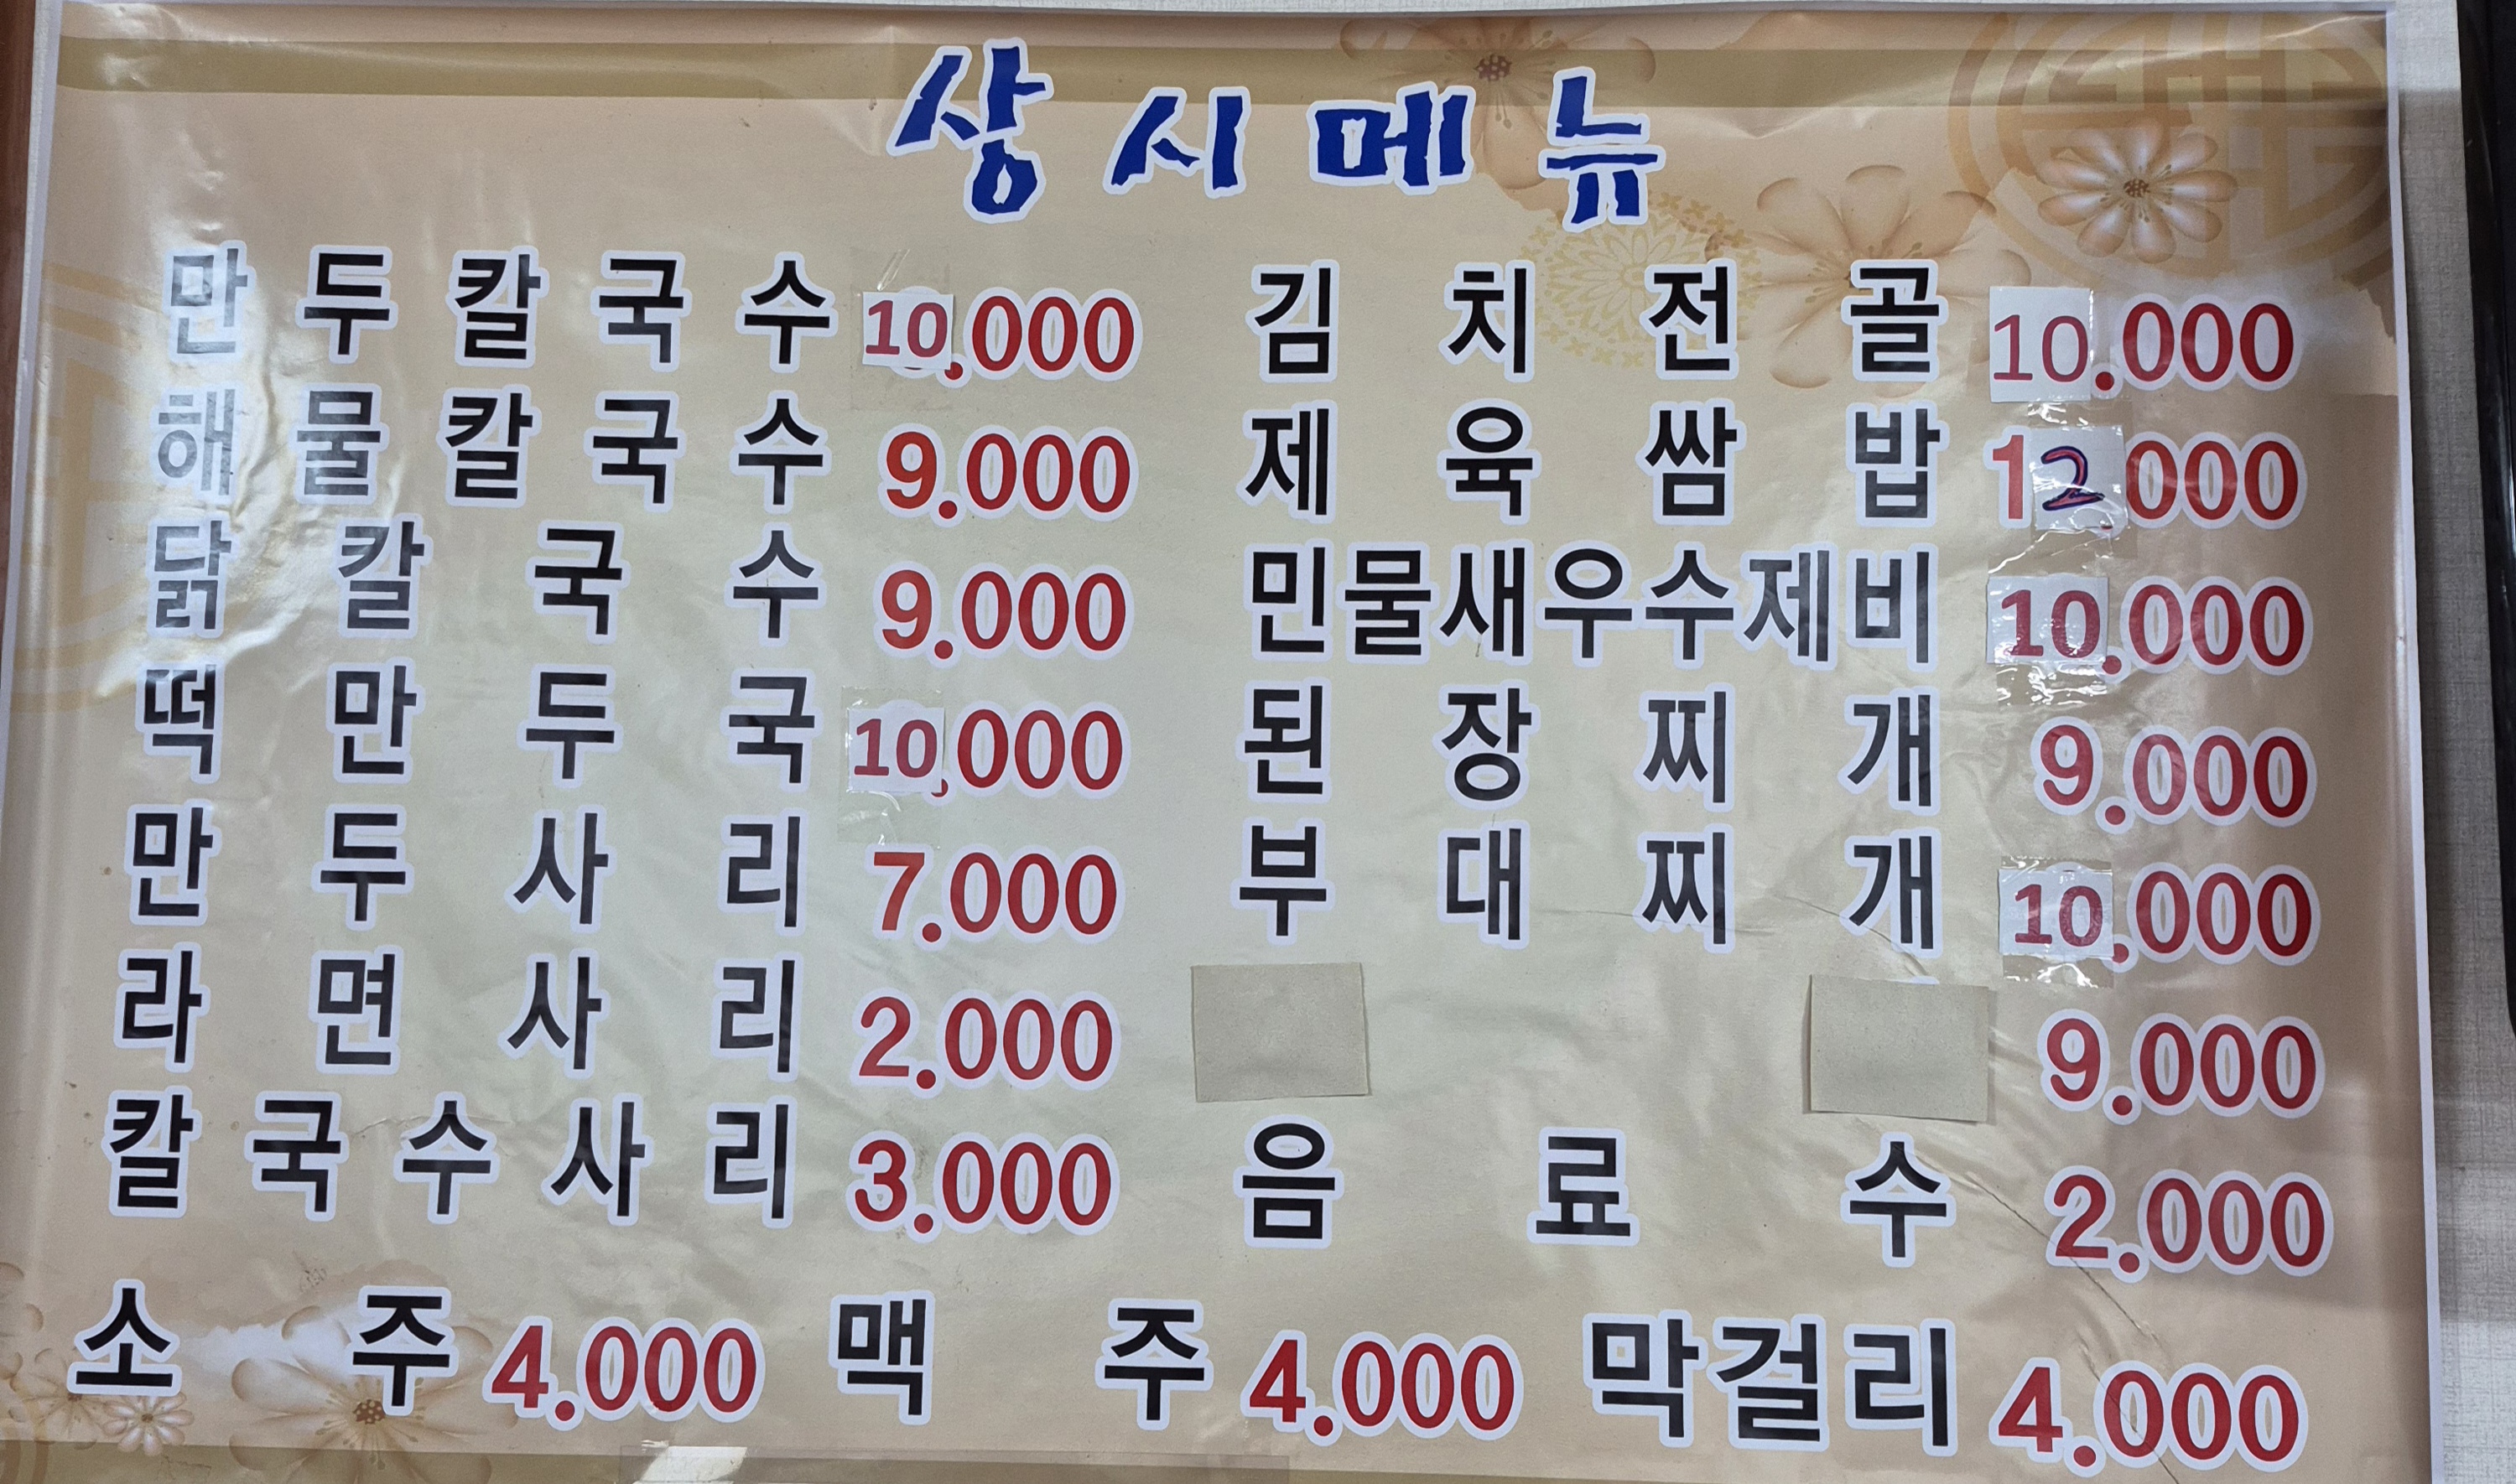 상시메뉴
만두칼국수 10.000 김치전골 10.000
해물칼국수 9.000 제육쌈밥 12.000
닭칼국수 9.000 민물새우수제비 10.000
떡만두국 10.000 된장찌개 9.000
만두사리 7.000 부대찌개 10.000
라면사리 2.000 9.000
칼국수사리 3.000 음료수 2.000
소주 4.000 맥주 4.000 막걸리 4.000